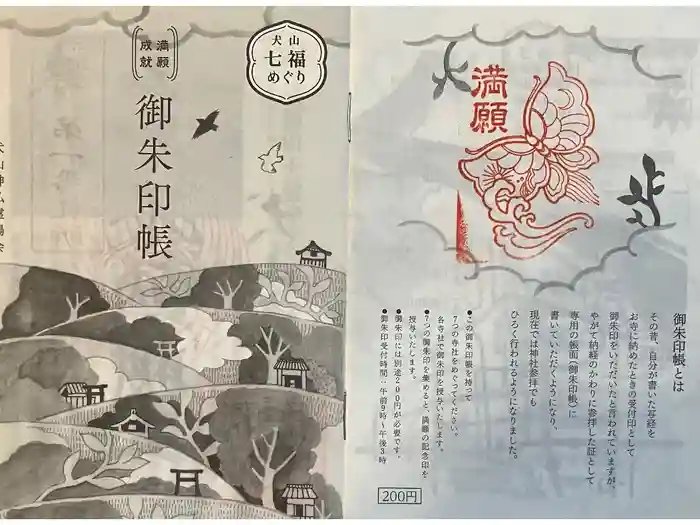 犬山
七福
めぐり
満願
成就
御朱印帳
満願
御朱印帳とは
その昔、自分が書いた写経を
お寺に納めたときの受付印として
御朱印をいただいたと言われていますが、
やがて納経のかわりに参拝した証として
専用の帳面(御朱印帳)に
書いていただくようになり、
現在では神社参拝でも
ひろく行われるようになりました。
●この御朱印帳を持って
7つの寺社をめぐってください。
各寺社で御朱印を授与いたします。
●7つの御朱印を集めると、満願の記念印を
授与いたします。
●御朱印には別途200円が必要です。
●御朱印受付時間:午前9時〜午後3時
200円